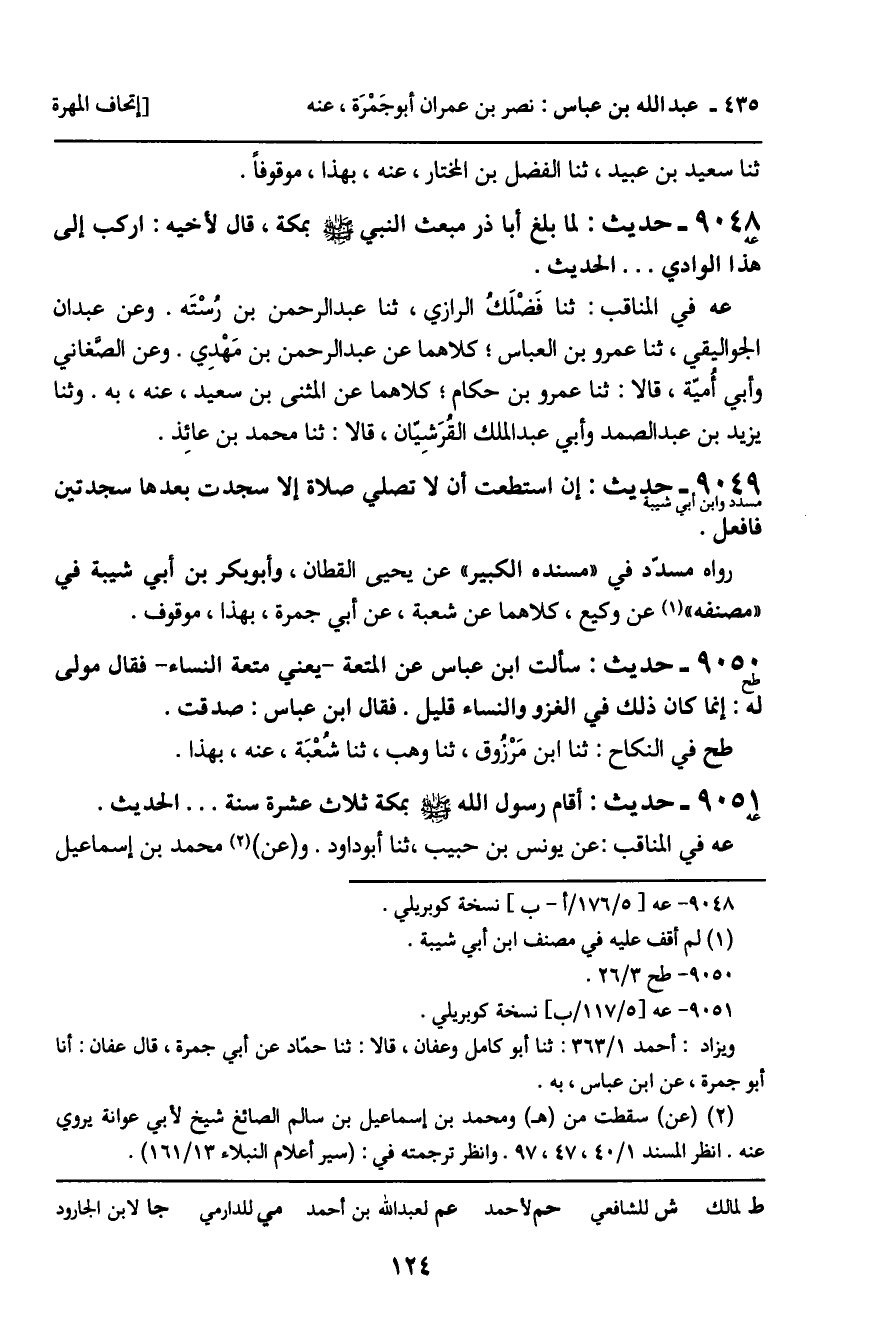 ٤٣٥ ـ عبدالله بن عباس : نصر بن عمران أبوجَمْرَة ، عنه [إتحاف المهرة
ثنا سعيد بن عبيد ، ثنا الفضل بن المختار ، عنه ، بهذا ، موقوفاً .
٩٠٤٨ ـ حديث : لما بلغ أبا ذر مبعث النبي ﷺ بمكة ، قال لأخيه : اركب إلى
عه
هذا الوادي ... الحديث .
عه في المناقب : ثنا فَضْلَكُ الرازي ، ثنا عبدالرحمن بن رُسْتَه . وعن عبدان
الجواليقي ، ثنا عمرو بن العباس ؛ كلاهما عن عبدالرحمن بن مَهْدِي . وعن الصَّغاني
وأبي أُميّة ، قالا : ثنا عمرو بن حكام ؛ كلاهما عن المثنى بن سعيد ، عنه ، به . وثنا
يزيد بن عبدالصمد وأبي عبدالملك القُرَشِيّان ، قالا : ثنا محمد بن عائِذ .
٩٠٤٩ ـ حديث : إن استطعت أن لا تصلي صلاة إلا سجدت بعدها سجدتين
مسدد وابن أبي شيبة
فافعل .
رواه مسدّد في «مسنده الكبير» عن يحيى القطان ، وأبوبكر بن أبي شيبة في
«مصنفه»(١) عن وكيع ، كلاهما عن شعبة ، عن أبي جمرة ، بهذا ، موقوف .
٩٠٥٠ ـ حديث : سألت ابن عباس عن المتعة –يعني متعة النساء– فقال مولى
طح
له : إنما كان ذلك في الغزو والنساء قليل . فقال ابن عباس : صدقت .
طح في النكاح : ثنا ابن مَرْزُوق ، ثنا وهب ، ثنا شُعْبَة ، عنه ، بهذا .
٩٠٥١ ـ حديث : أقام رسول الله ﷺ بمكة ثلاث عشرة سنة ... الحديث .
عه
عه في المناقب :عن يونس بن حبيب ،ثنا أبوداود . و(عن)(٢) محمد بن إسماعيل
٩٠٤٨– عه [ ١٧٦/٥/أ – ب ] نسخة كوبريلي .
(١) لم أقف عليه في مصنف ابن أبي شيبة .
٩٠٥٠– طح ٢٦/٣ .
٩٠٥١– عه [١١٧/٥/ب] نسخة كوبريلي .
ويزاد : أحمد ٣٦٣/١ : ثنا أبو كامل وعفان ، قالا : ثنا حمّاد عن أبي جمرة ، قال عفان : أنا
أبو جمرة ، عن ابن عباس ، به .
(٢) (عن) سقطت من (هـ) ومحمد بن إسماعيل بن سالم الصائغ شيخ لأبي عوانة يروي
عنه . انظر المسند ٤٠/١ ، ٤٧ ، ٩٧ . وانظر ترجمته في : (سير أعلام النبلاء ١٦١/١٣) .
ط لمالك ش للشافعي حم لأحمد عم لعبدالله بن أحمد مي للدارمي جا لابن الجارود
١٢٤